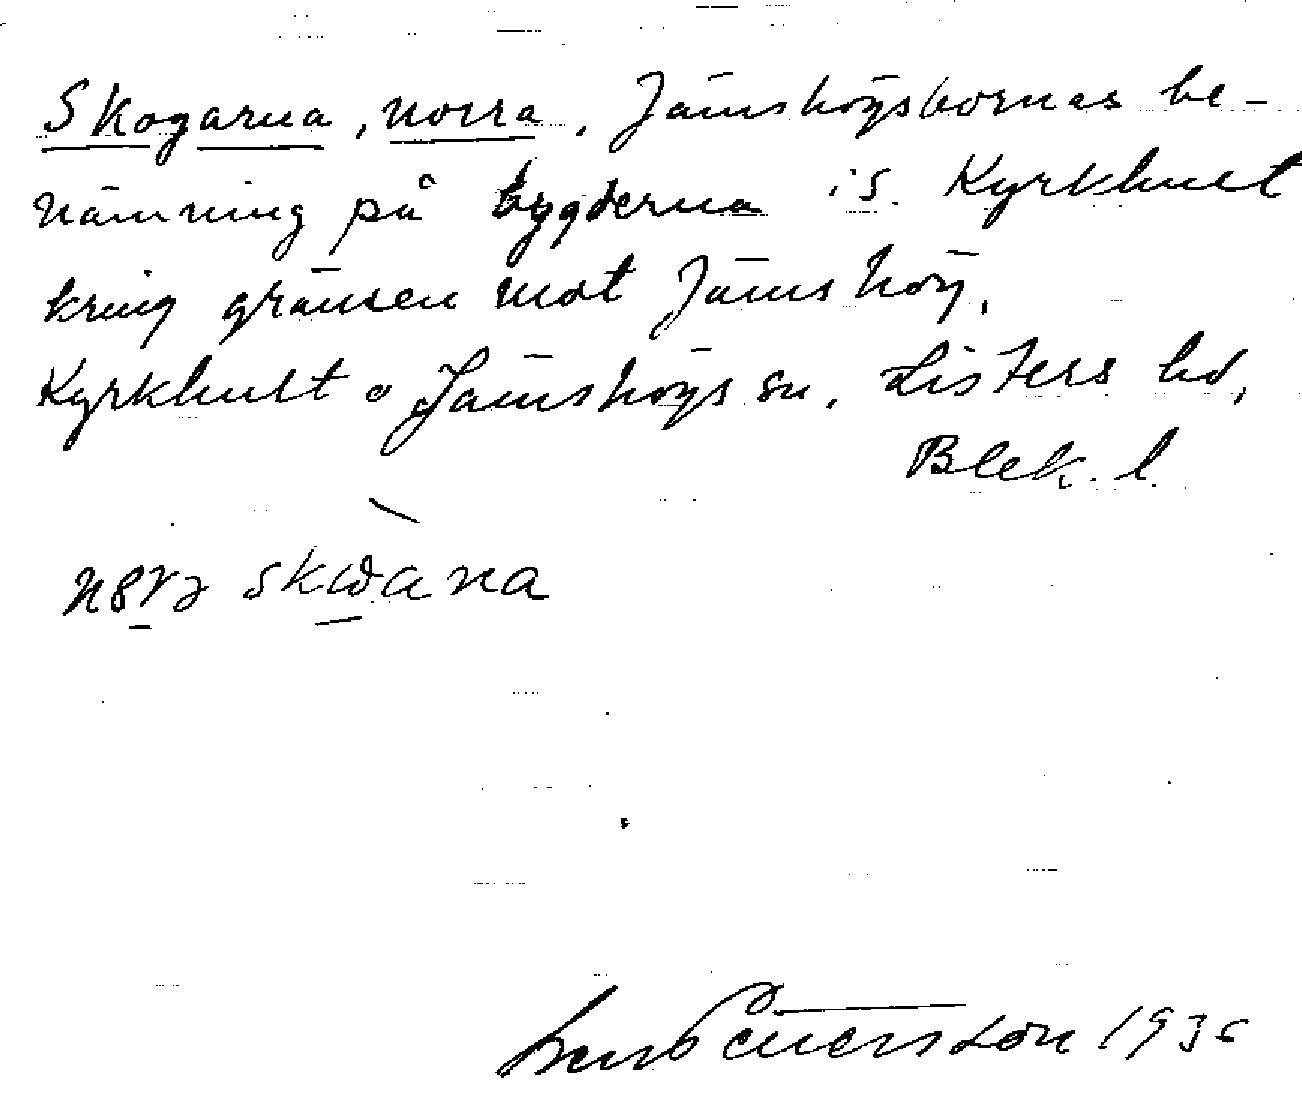 Skogarna, norra. Jämshögsbornas be-
nämning på bygderna i s. Kyrkhult
kring gränsen mot Jämshög.
Kyrkhult o Jämshögs sn. Listers hd,
Blek. l.
Pettersson 193